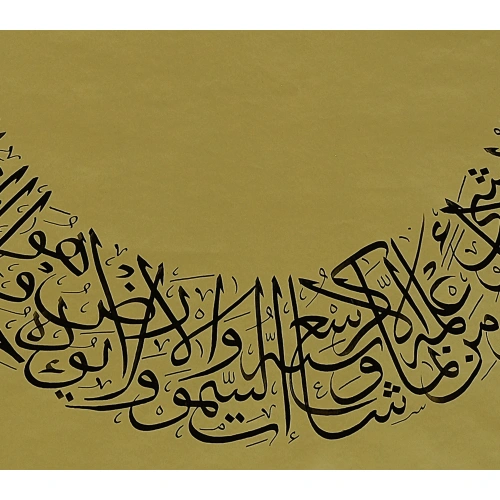 بشيء من علمه إلا بما شاء وسع كرسيه السموات والأرض ولا يؤده